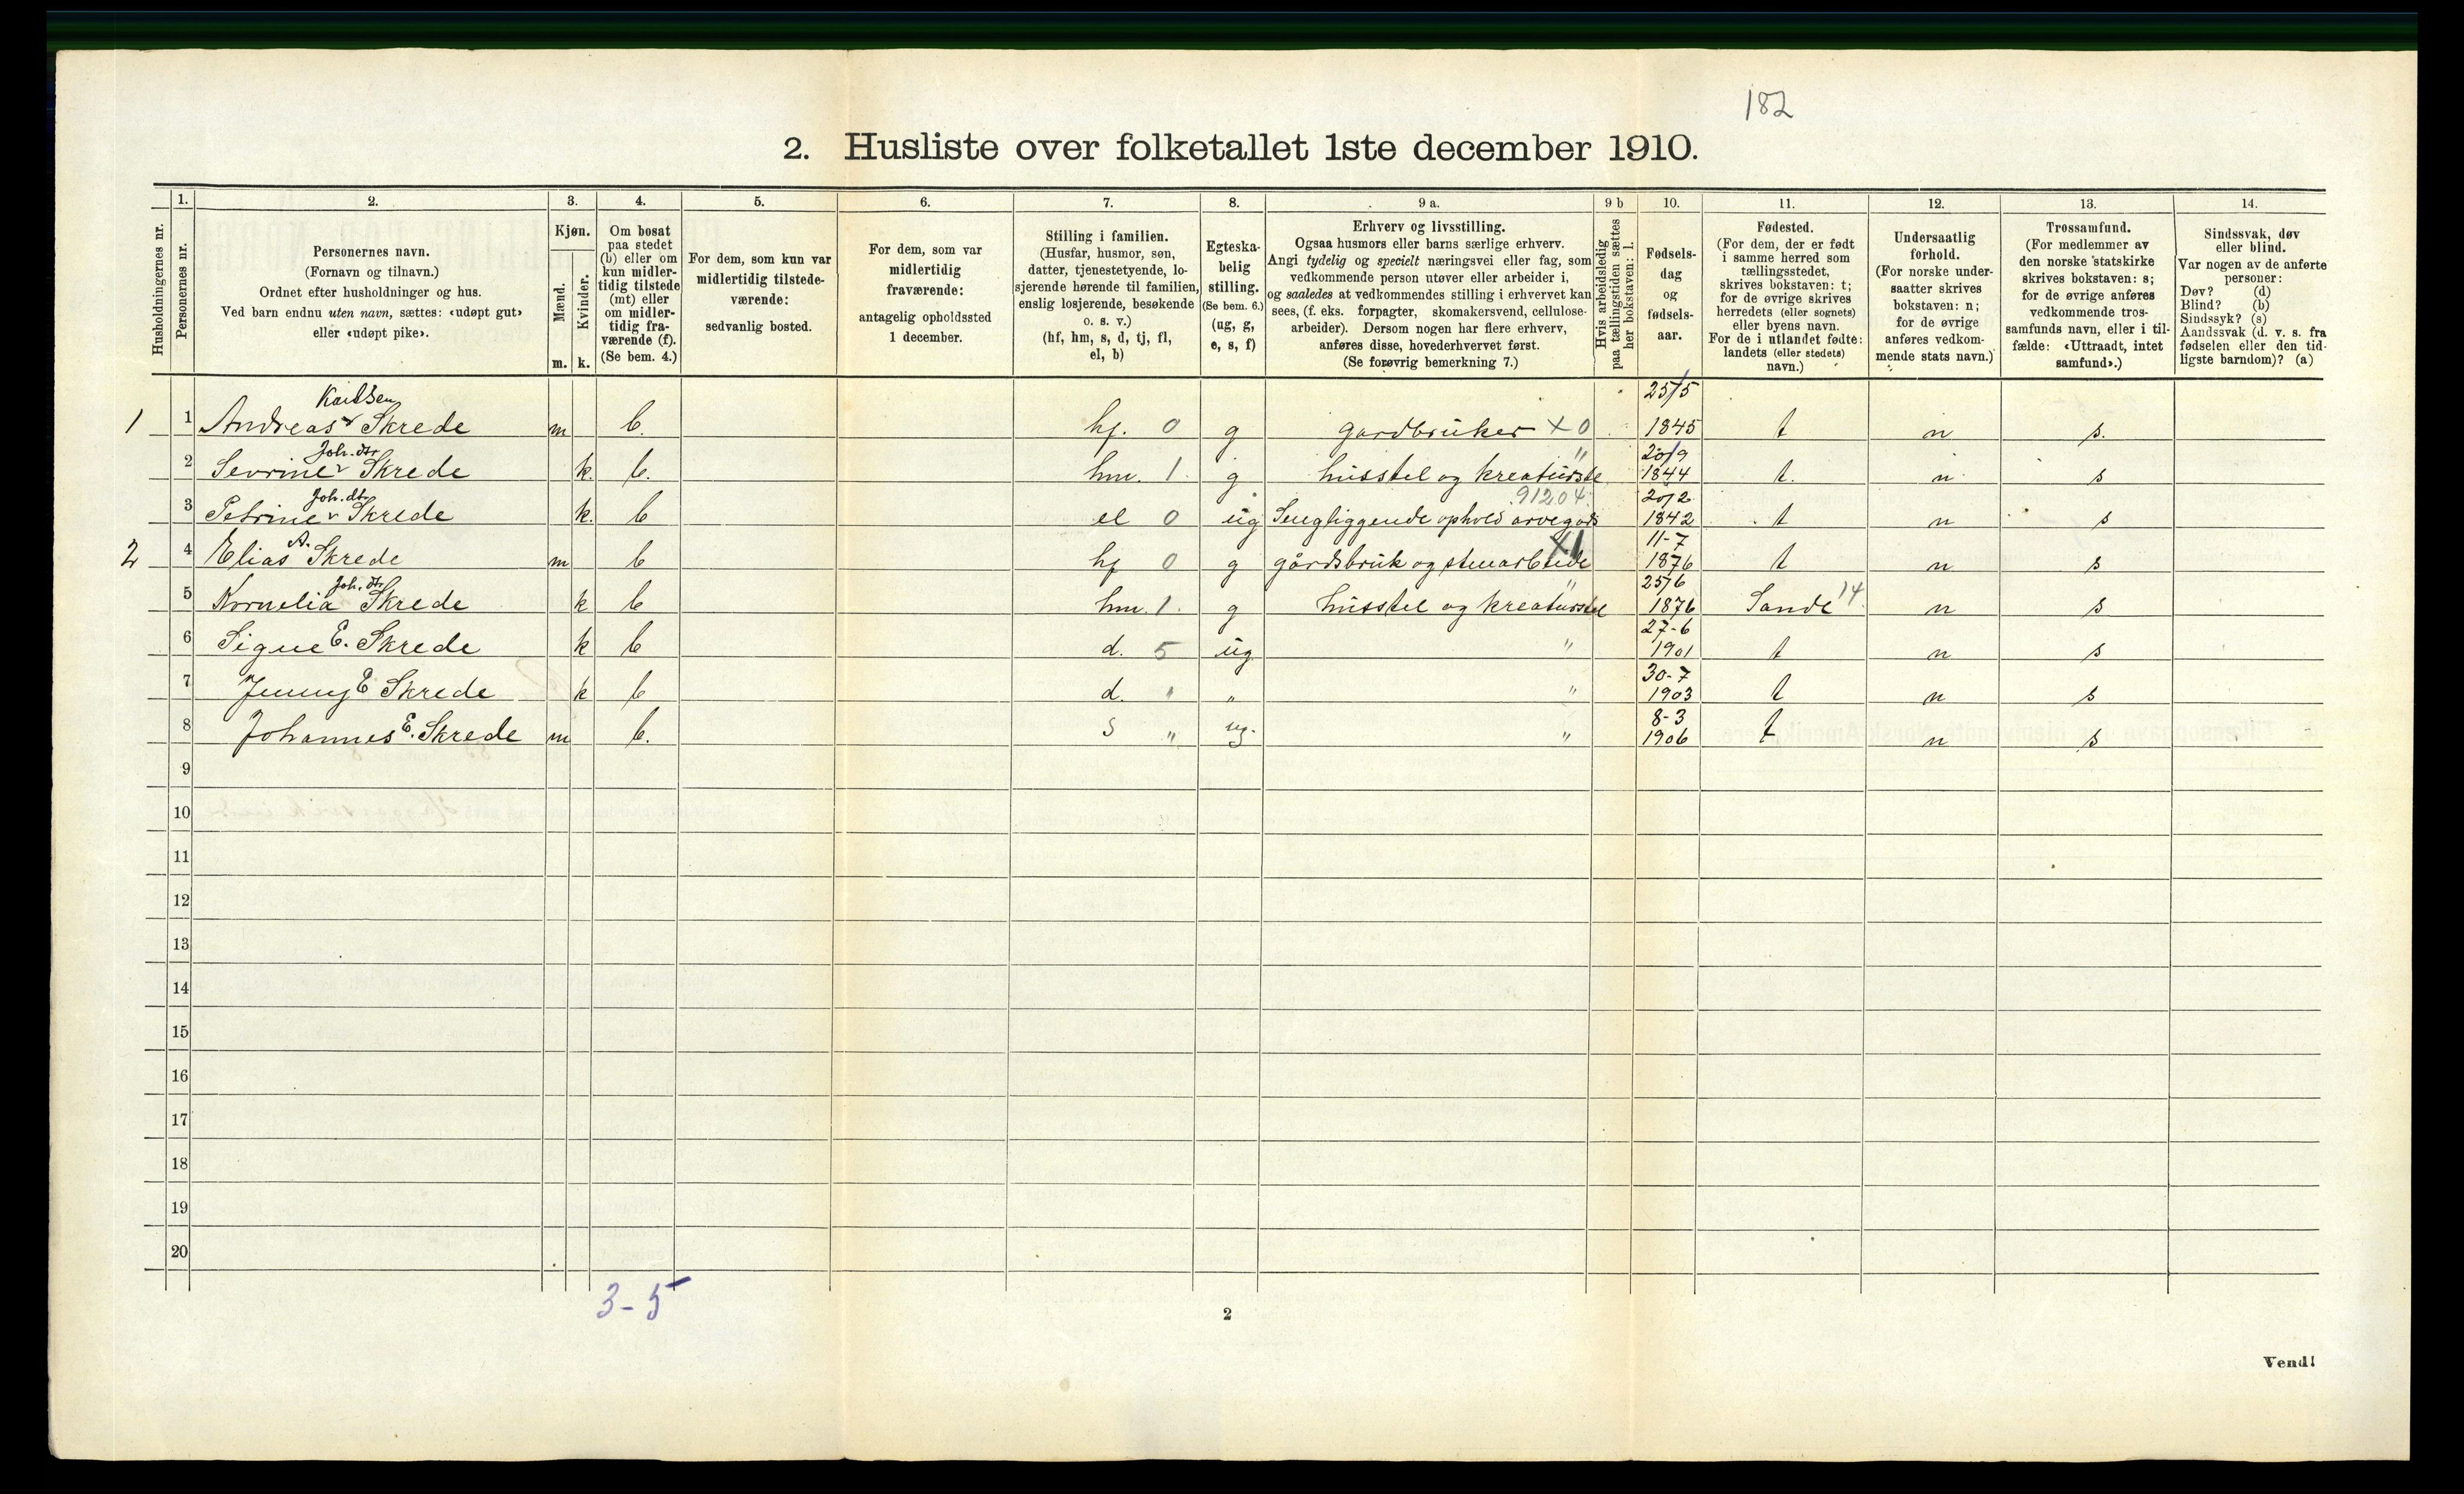 182
2. Husliste over folketallet 1ste december 1910.
Husholdningernes nr.
1. Personernes nr.
2. Personernes navn.
(Fornavn og tilnavn.)
Ordnet efter husholdninger og hus.
Ved barn endnu uten navn, sættes: «udøpt gut»
eller «udøpt pike».
3. Kjøn.
Mænd. Kvinder.
m. k.
4. Om bosat
paa stedet
(b) eller om
kun midler-
tidig tilstede
(mt) eller
om midler-
tidig fra-
værende (f).
(Se bem. 4.)
5. For dem, som kun var
midlertidig tilstede-
værende:
sedvanlig bosted.
6. For dem, som var
midlertidig
fraværende:
antagelig opholdssted
1 december.
7. Stilling i familien.
(Husfar, husmor, søn,
datter, tjenestetyende, lo-
sjerende hørende til familien,
enslig losjerende, besøkende
o. s. v.)
(hf, hm, s, d, tj, fl,
el, b)
8. Egteska-
belig
stilling.
(Se bem. 6.)
(ug, g,
e, s, f)
9 a. Erhverv og livsstilling.
Ogsaa husmors eller barns særlige erhverv.
Angi tydelig og specielt næringsvei eller fag, som
vedkommende person utøver eller arbeider i,
og saaledes at vedkommendes stilling i erhvervet kan
sees, (f. eks. forpagter, skomakersvend, cellulose-
arbeider). Dersom nogen har flere erhverv,
anføres disse, hovederhvervet først.
(Se forøvrig bemerkning 7.)
9 b Hvis arbeidsledig
paa tællingstiden sættes
her bokstaven: l.
10. Fødsels-
dag
og
fødsels-
aar.
11. Fødested.
(For dem, der er født
i samme herred som
tællingsstedet,
skrives bokstaven: t;
for de øvrige skrives
herredets (eller sognets)
eller byens navn.
For de i utlandet fødte:
landets (eller stedets)
navn.)
12. Undersaatlig
forhold.
(For norske under-
saatter skrives
bokstaven: n;
for de øvrige
anføres vedkom-
mende stats navn.)
13. Trossamfund.
(For medlemmer av
den norske statskirke
skrives bokstaven: s;
for de øvrige anføres
vedkommende tros-
samfunds navn, eller i til-
fælde: «Uttraadt, intet
samfund».)
14. Sindssvak, døv
eller blind.
Var nogen av de anførte
personer:
Døv? (d)
Blind? (b)
Sindssyk? (s)
Aandssvak (d. v. s. fra
fødselen eller den tid-
ligste barndom)? (a)
25/5
1 1 Andreas Skrede m b. hf. 0 g gardbruker x0 1845 t n s.
Joh.dtr 20/9
2 Sevrine Skrede k. b. hm. 1 g husstel og kreaturste 1844 t. n s
Joh.dtr 91204 20/2
3 Petrine Skrede k. b el 0 ug Sengliggende ophold arvegods 1842 t n s
A. X1 11-7
2 4 Elias Skrede m b hf 0 g gårdsbruk og stenarbeide 1876 t n s
Joh.dtr " 25/6
5 Kornelia Skrede k b hm. 1. g husstel og kreaturstel 1876 Sande 14 n s
27-6
6 Signe E. Skrede k b d. 5 ug " 1901 t n s
30-7
7 Jenny E Skrede k b d. " " " 1903 t n s
8-3
8 Johannes E. Skrede m b. s " ug. " 1906 t n s
9
10
11
12
13
14
15
16
17
18
19
20
3-5
2
Vend!